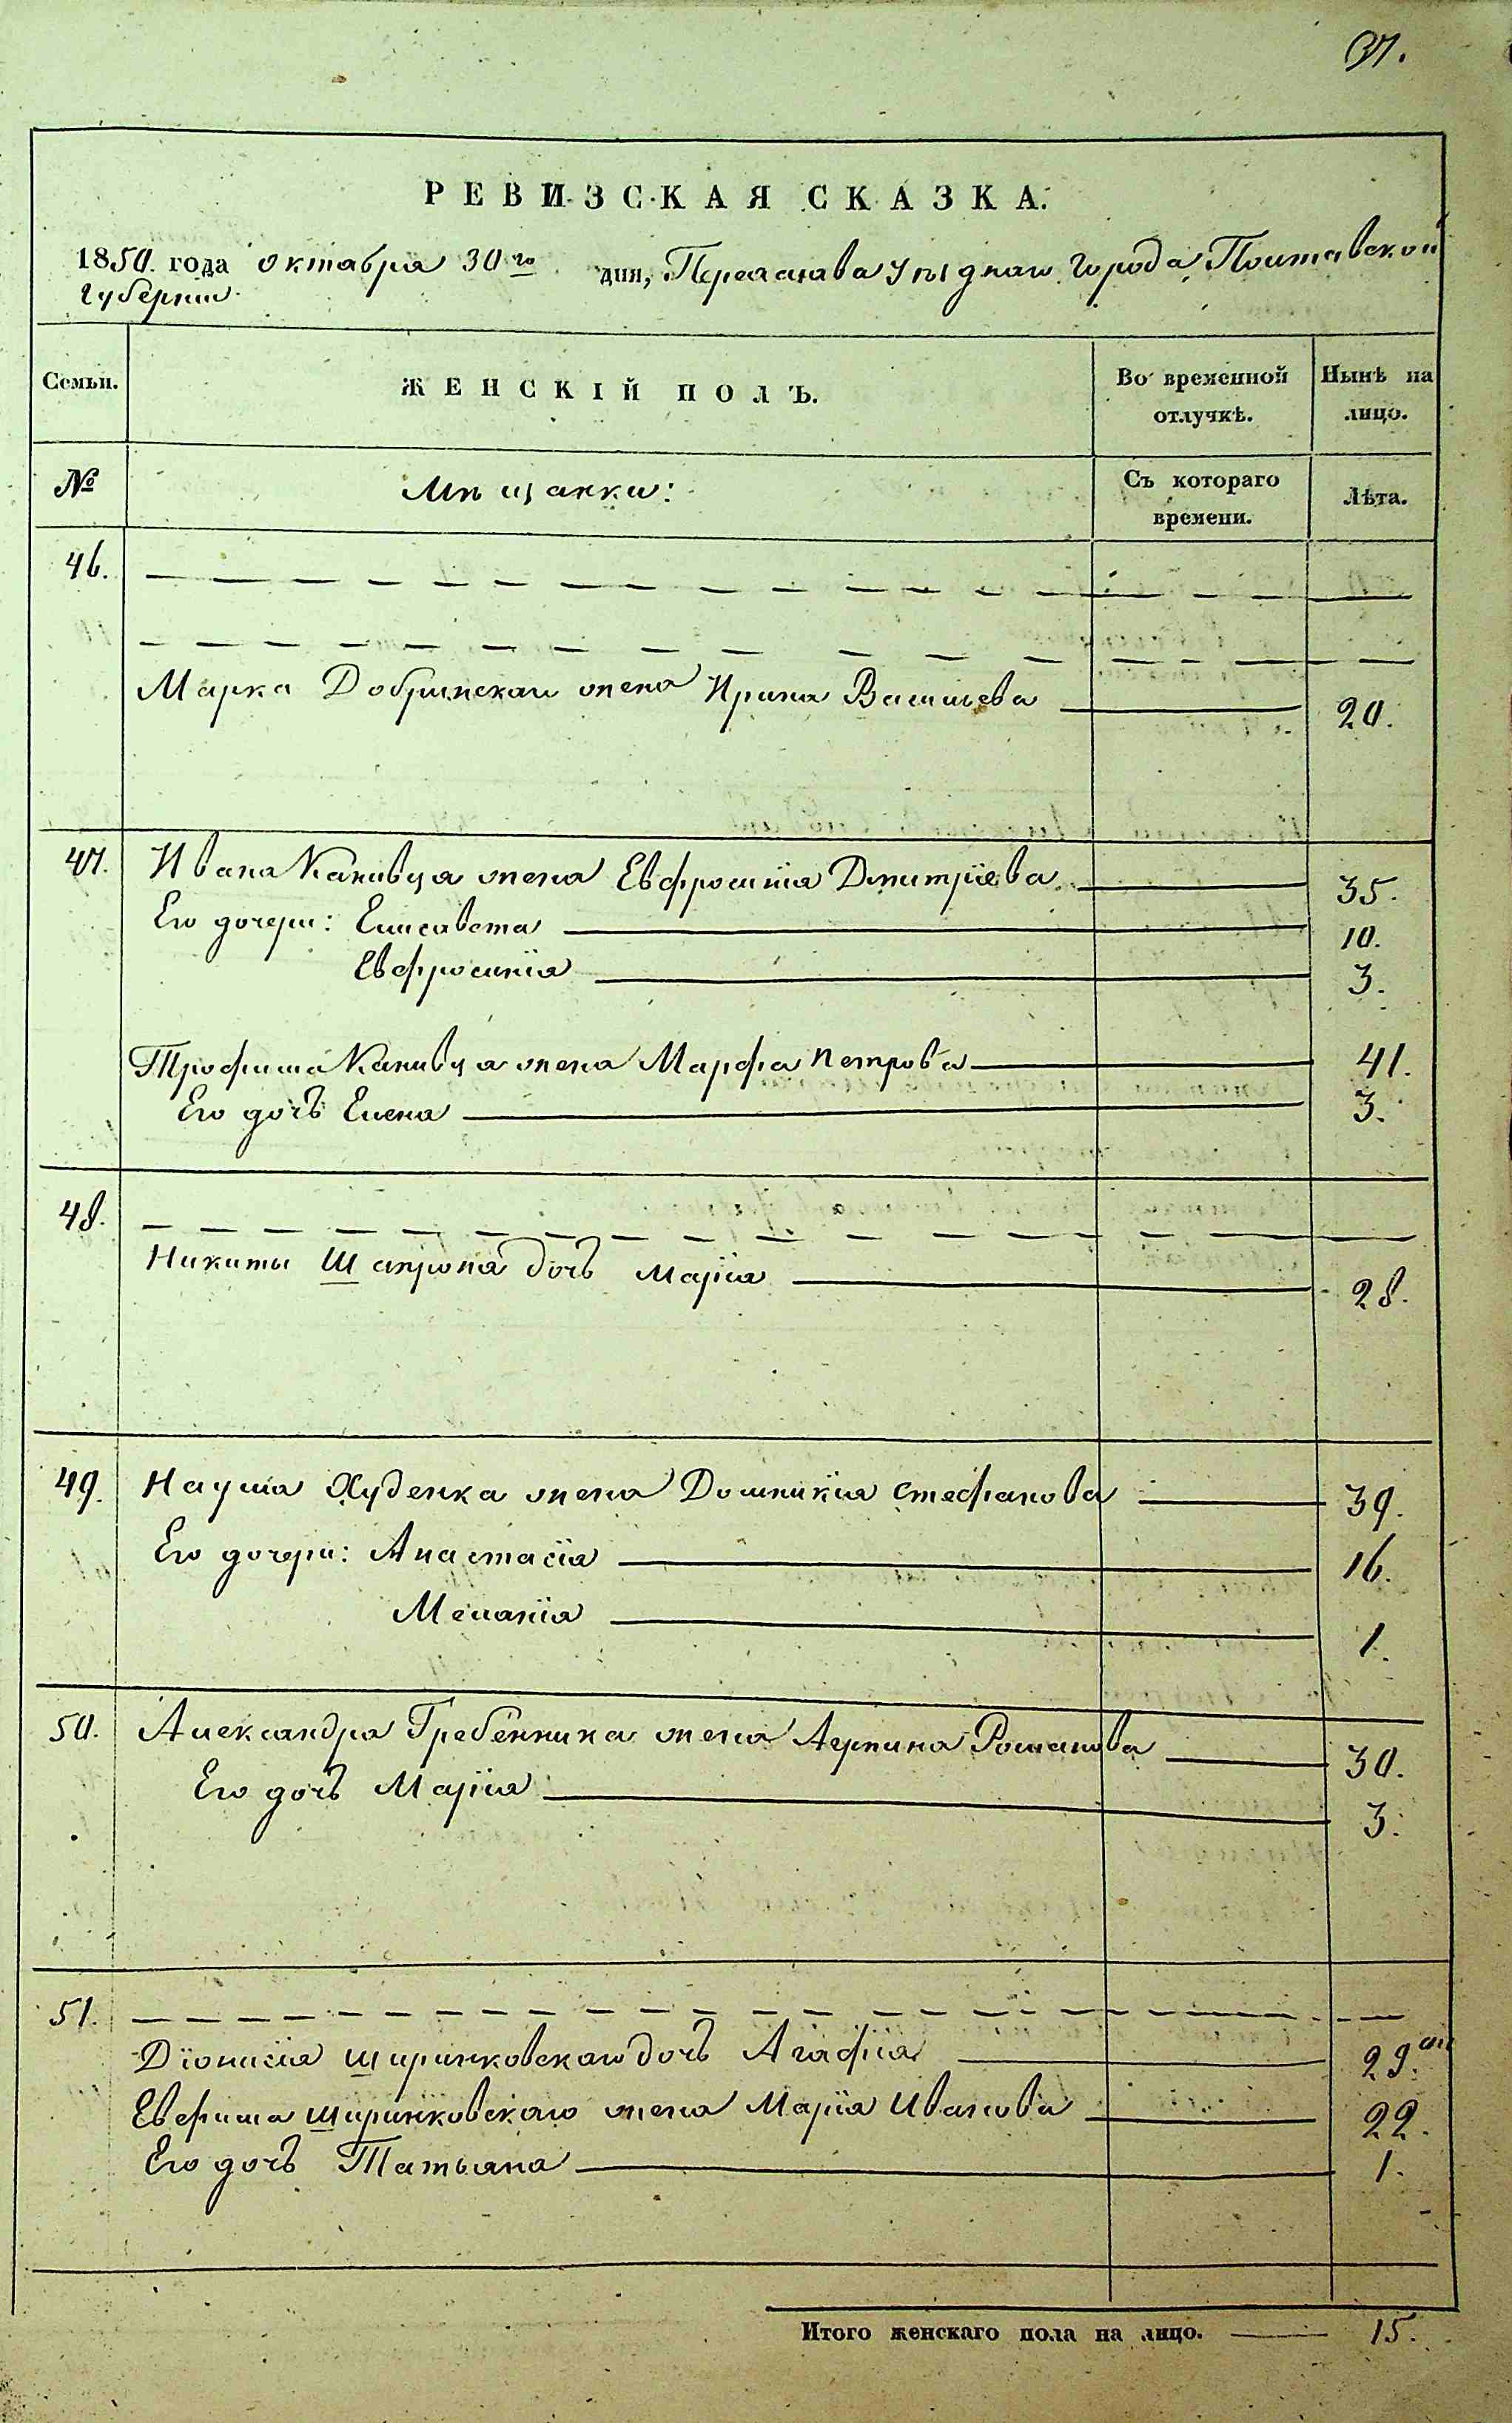 37.
РЕВИЗСКАЯ СКАЗКА.
1850. года октября 30го дня, Переяслава уѣзднаго города, Полтавской
губернии.
Семьи. ЖЕНСКІЙ ПОЛЪ. Во временной отлучкѣ. Нынѣ на лицо.
№ Мѣщанки: Съ котораго времени. Лѣта.
46.
Марка Добринскаго жена Ирина Васильева 20.
47. Ивана Канивца жена Евфросинія Дмитріева 35.
Его дочери: Елисавета 10.
Евфросинія 3.
Трофима Канивца жена Марфа Петрова 41.
Его дочь Елена 3.
48.
Никиты Шапрона дочь Марія 28.
49. Наума Худенка жена Домникія Стефанова 39.
Его дочери: Анастасія 16.
Меланія 1.
50. Александра Гребенника жена Агрипина Романова 30.
Его дочь Марія 3.
51.
Діонисія Ширинковскаго дочь Агафія 29.
Евфима Ширинковскаго жена Марія Иванова 22.
Его дочь Татьяна 1.
Итого женскаго пола на лицо. 15.